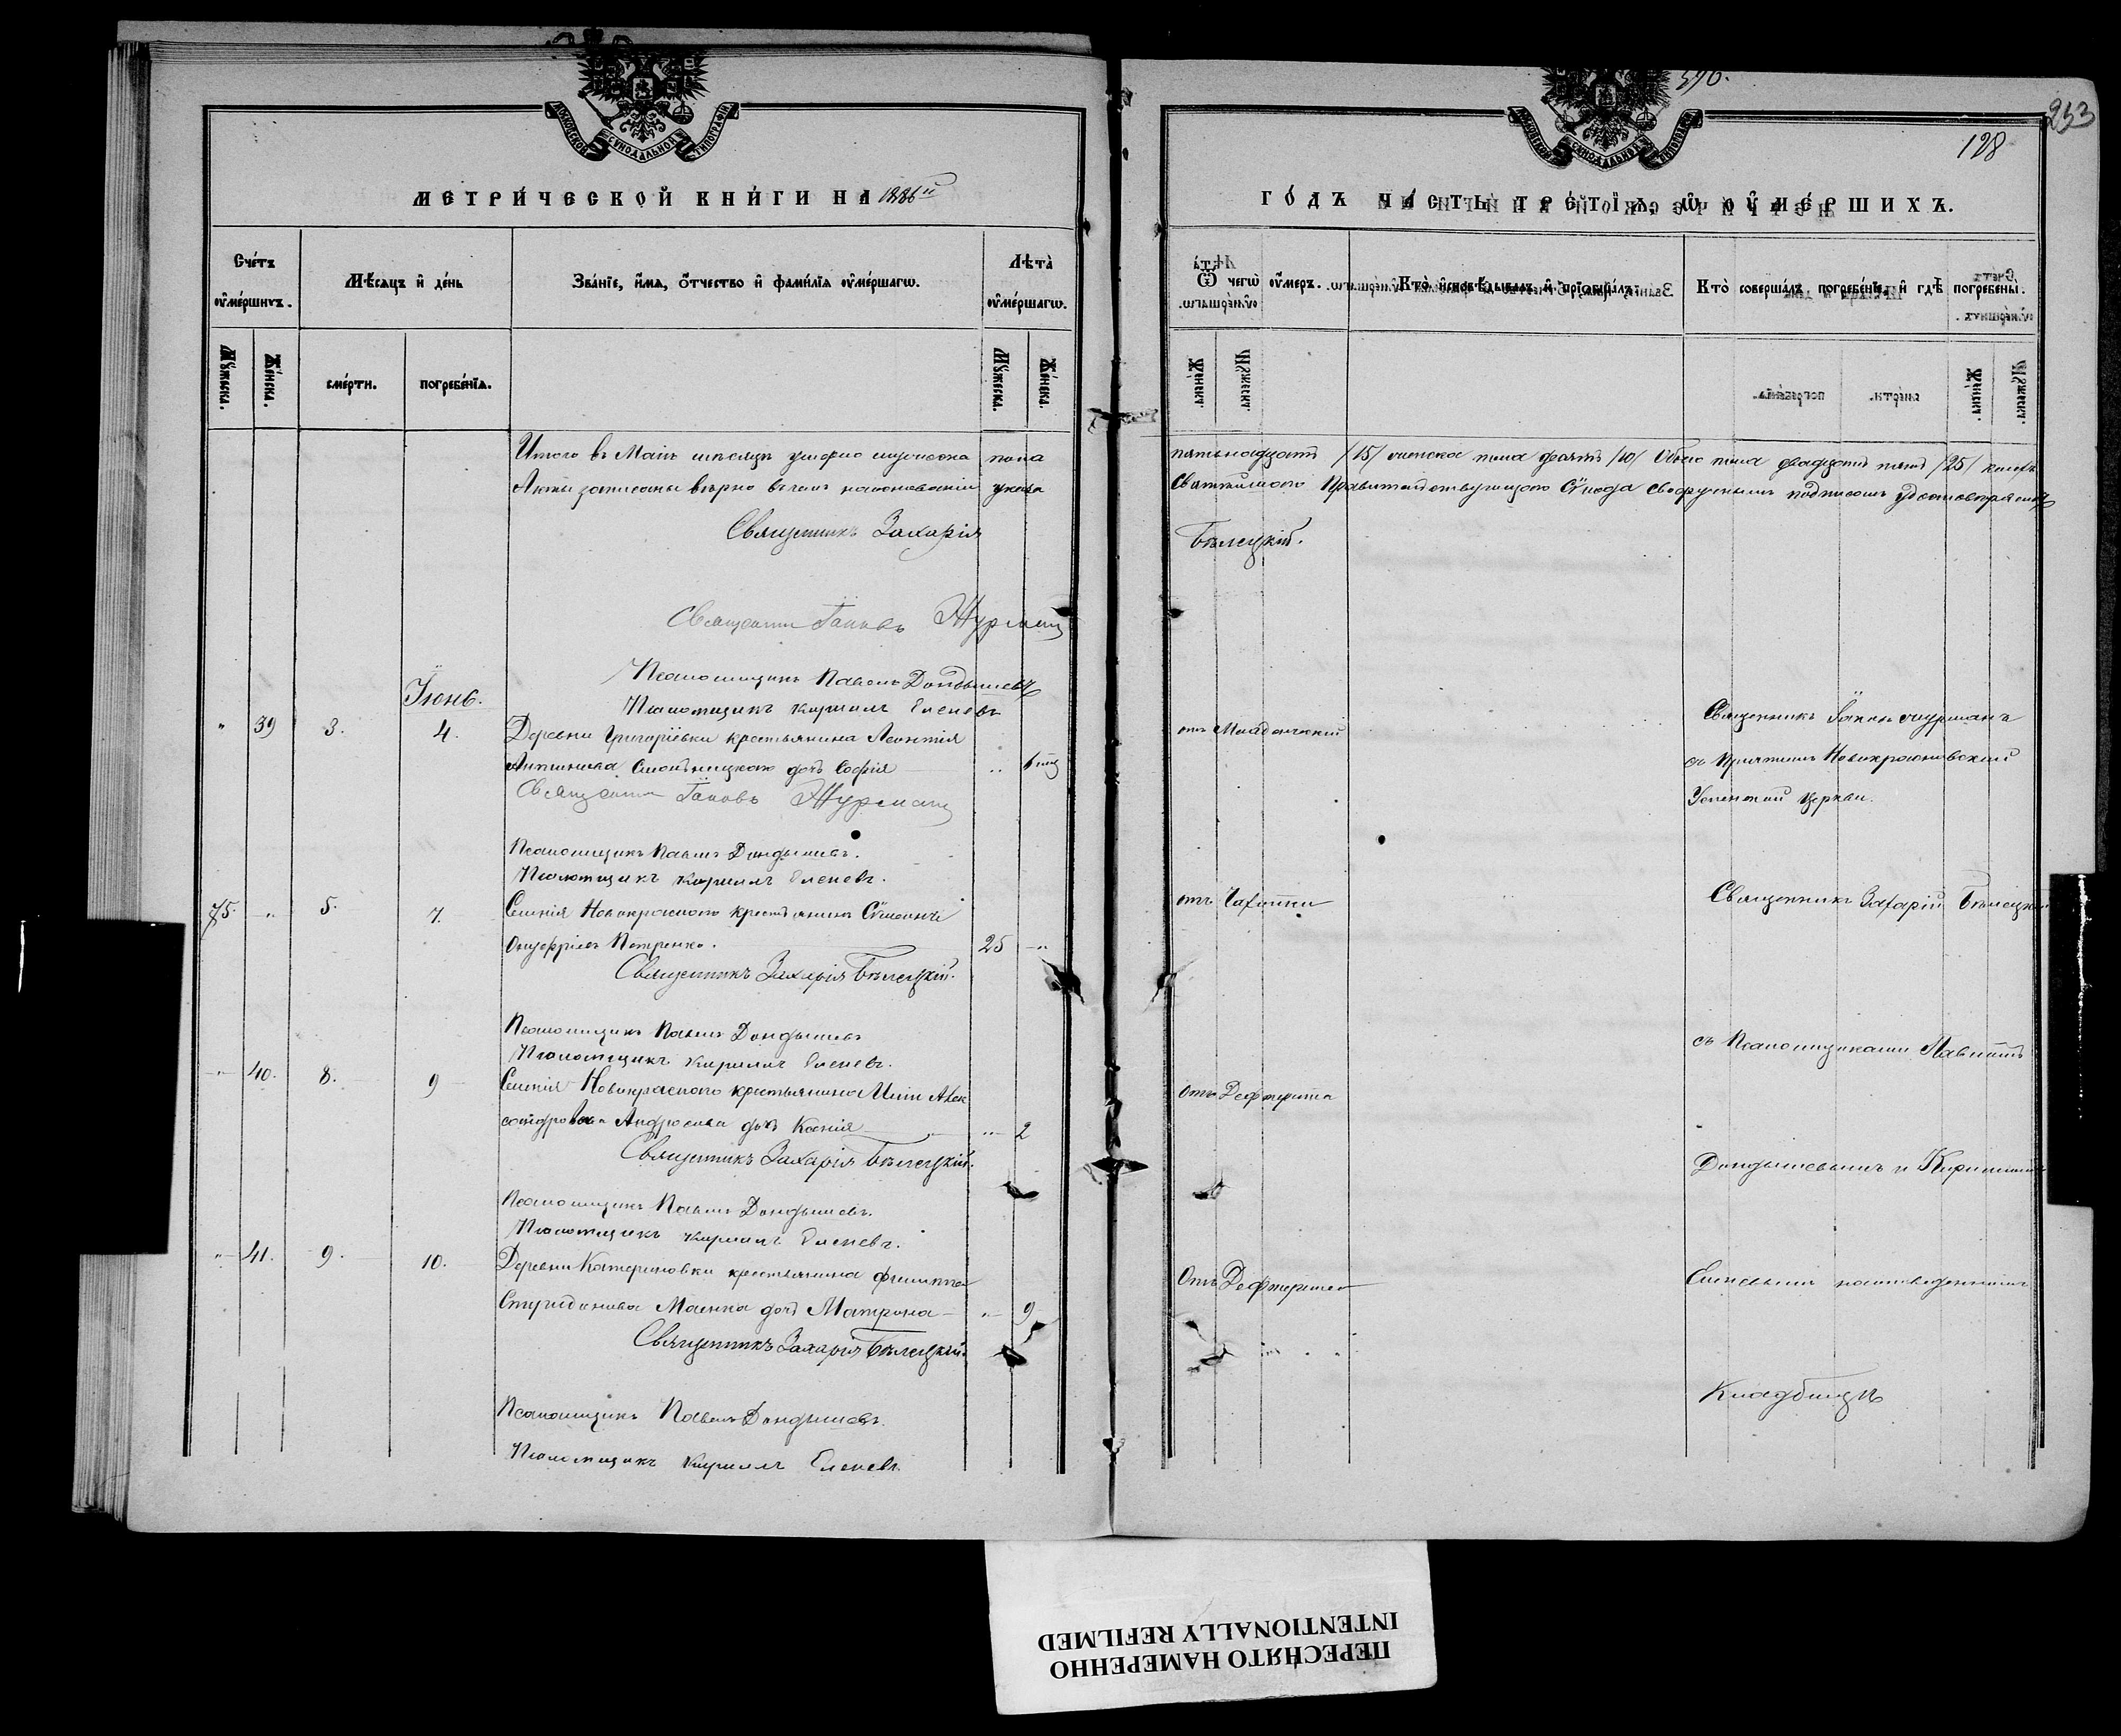 МОСКОВСКОЙ СѴНОДАЛЬНОЙ ТИПОГРАФІИ
МЕТРИ́ЧЕСКОЙ КНИ́ГИ НА 1886й
Счétъ ᲂу҆ме́ршихъ.
Мѣ́сяцъ и҆ де́нь
Зва́нїе, и҆́мѧ, ѻ҆́тчество и҆ фами́лїѧ ᲂу҆ме́ршагѡ.
Лѣта̀ ᲂу҆ме́ршагѡ.
Мꙋ́жеска.
Же́нска.
сме́рти.
погребе́нїѧ.
Мꙋ́жеска.
Же́нска.
Итого въ Маіѣ мѣсяцѣ умерло мужеска пола
Акты записаны вѣрно въ чемъ на основаніи указа
Священникъ Захарія
Священникъ Іаковъ Журманъ
Псаломщикъ Павелъ Дондышевъ
Псаломщикъ Кириллъ Еленевъ
Іюнь.
" 39 3. 4. Деревни Григоріевки крестьянина Леонтія
дочь Софія " 6 мц
Священникъ Іаковъ Журманъ
Псаломщикъ Павелъ Дондышевъ.
Псаломщикъ Кириллъ Еленевъ.
75. " 5. 7. Селенія Новокрасного крестьянинъ Сѷмеонъ
Онуфріевъ Петренко. 25 "
Священникъ Захарія Бѣлецкій.
Псаломщикъ Павелъ Дондышевъ
Псаломщикъ Кириллъ Еленевъ.
" 40. 8. 9 Селенія Новокрасного крестьянина Иліи Алек
сандрова Андросова дочь Ксенія " 2
Священникъ Захарія Бѣлецкій.
Псаломщикъ Павелъ Дондышевъ.
Псаломщикъ Кириллъ Еленевъ.
" 41. 9. 10. Деревни Катериновки крестьянина Филиппа
Спиридонова Маенка дочь Матрона " 9
Священникъ Захарія Бѣлецкій.
Псаломщикъ Павелъ Дондышевъ.
Псаломщикъ Кириллъ Еленевъ
396.
253
128
МОСКОВСКОЙ СѴНОДАЛЬНОЙ ТИПОГРАФІИ
ГО́ДЪ ЧА́СТЬ ТРЕ́ТЇѦ, Ѡ҆ ОУ҆МЕ́РШИХЪ.
Ѿ чегѡ̀ ᲂу҆́меръ.
Кто̀ и҆сповѣ́дывалъ и҆ прїѡбща́лъ.
Кто̀ соверша́лъ погребе́нїе, и҆ гдѣ̀ погребены̀.
пятьнадцать /15/ женска пола десять /10/ Обоего пола двадцать пять /25/
Святѣйшаго Правительствующаго Сѷнода своеручнымъ подписомъ удостовѣряемъ
Бѣлецкій.
отъ Младенческій
Священникъ Іаковъ Журманъ
съ Причтомъ Новокрасновской
Успенской Церкви.
отъ Чахотки
Священникъ Захарій Бѣлецкій
съ Псаломщиками Павломъ
отъ Дефтерита
Дондышевымъ и Кирилломъ
Отъ Дефтерита
Еленевымъ на отведенномъ
Кладбищѣ
ПЕРЕСНЯТО НАМЕРЕННО
INTENTIONALLY REFILMED